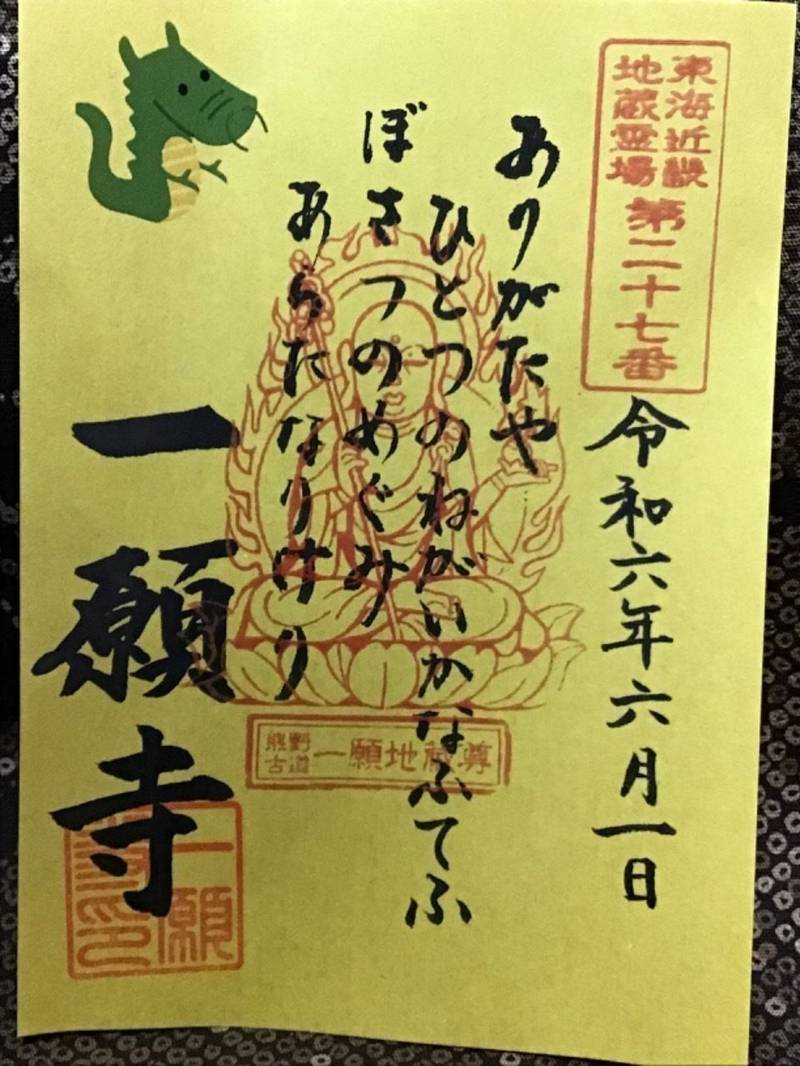 東海近畿
地蔵霊場
第二十七番
令和六年六月一日
ありがたや
ひとつのねがいかなふてふ
ぼさつのめぐみ
あらたなりけり
熊野
古道
一願地蔵尊
一願寺
一願
印